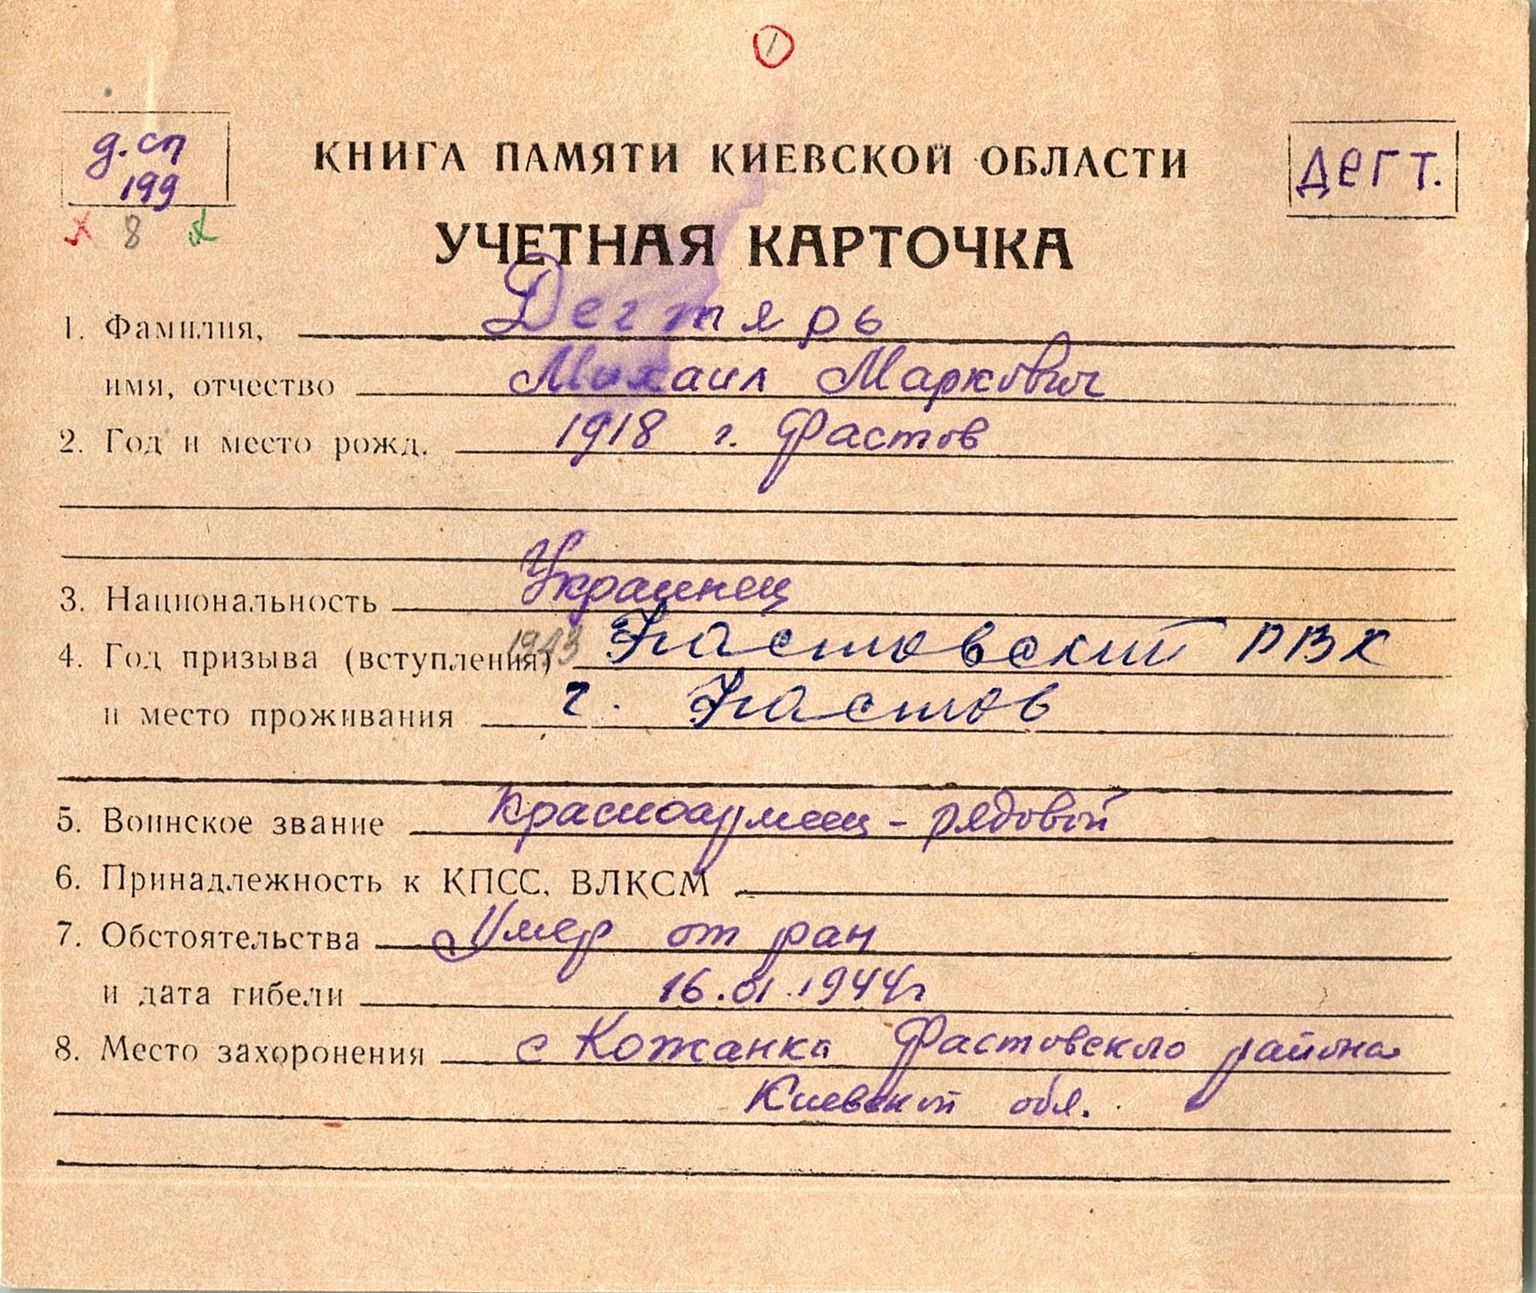 1
д.сп
199
8
КНИГА ПАМЯТИ КИЕВСКОЙ ОБЛАСТИ
Дегт.
УЧЕТНАЯ КАРТОЧКА
1. Фамилия, Дегтярь
имя, отчество Михаил Маркович
2. Год и место рожд. 1918 г. Фастов
3. Национальность Украинец
4. Год призыва (вступления) 1943 Фастовский РВК
и место проживания г. Фастов
5. Воинское звание Красноармеец - рядовой
6. Принадлежность к КПСС, ВЛКСМ
7. Обстоятельства Умер от ран
и дата гибели 16.01.1944г
8. Место захоронения с Кожанка Фастовского района
Киевской обл.